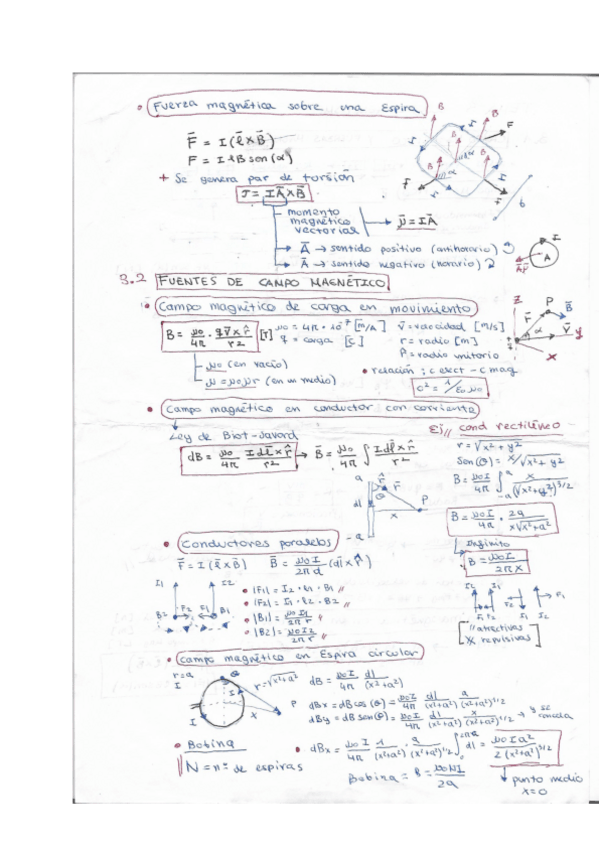 Fuerza magnética sobre una Espira
F̄ = I(l̄ x B̄)
F = I l B sen(α)
+ Se genera par de torsión
τ = I Ā x B̄
- momento magnético vectorial → μ̄ = I Ā
→ Ā → sentido positivo (antihorario)
→ Ā → sentido negativo (horario)
3.2 FUENTES DE CAMPO MAGNÉTICO
Campo magnético de carga en movimiento
B = μ0/4π · q v̄ x r̂/r² [T]
μ0 = 4π · 10⁻⁷ [m/A]
q = carga [C]
v̄ = velocidad [m/s]
r = radio [m]
r̂ = radio unitario
μ0 (en vacío)
μ = μ0 μr (en un medio)
relación : c elect - c mag
c² = 1/ε0 μ0
Campo magnético en conductor con corriente
Ley de Biot-Savard
dB̄ = μ0/4π I dl̄ x r̂/r² → B̄ = μ0/4π ∫ I dl̄ x r̂/r²
Ej// cond rectilíneo
r = √x² + y²
sen(θ) = x/√x² + y²
B = μ0 I/4π ∫ x/(√x² + y²)^3/2
B = μ0 I/4π · 2a/x√x²+a²
Infinito
B = μ0 I/2π x
Conductores paralelos
F̄ = I(l̄ x B̄) B̄ = μ0 I/2π d (dl̄ x r̂)
I1 I2
B2 F2 F1 B1
|F1| = I2 · l1 · B1 //
|F2| = I1 · l2 · B2 //
|B1| = μ0 I1/2π r
|B2| = μ0 I2/2π r //
"atractivas
X repulsivas
Campo magnético en Espira circular
r = a
r = √x²+a²
dB = μ0 I/4π dl/(x²+a²)
dBx = dB cos(θ) = μ0 I/4π dl/(x²+a²) a/(x²+a²)^1/2
dBy = dB sen(θ) = μ0 I/4π dl/(x²+a²) x/(x²+a²)^1/2 → y se cancela
Bobina
N = nº de espiras
dBx = μ0 I/4π 1/(x²+a²) · a/(x²+a²)^1/2 ∫ dl = μ0 I a²/2(x²+a²)^3/2
Bobina = B = μ0 N I/2a
punto medio
x=0